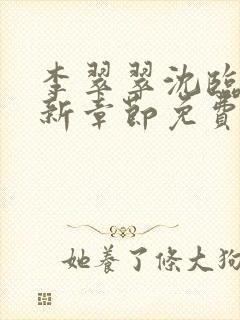 李翠翠沈臨
新章節免費
她養了條大狗